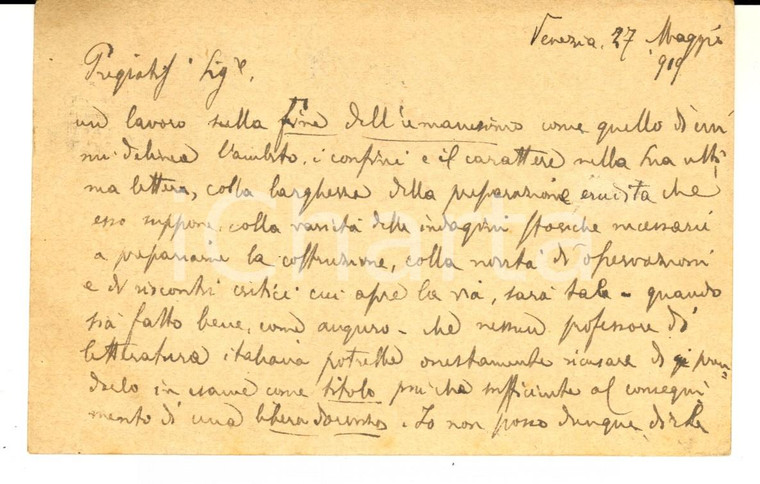 Venezia, 27 Maggio
919
Pregiatis. Sig.e,
un lavoro sulla fine dell'umanesimo come quello di cui
mi delinea l'ambito, i confini e il carattere nella Sua ulti-
ma lettera, colla larghezza della preparazione erudita che
esso suppone, colla varietà delle indagini storiche necessarie
a prepararne la costruzione, colla novità di osservazioni
e di riscontri critici cui apre la via, sarà tale - quando
sia fatto bene, come auguro - che nessun professore di
letteratura italiana potrebbe onestamente ricusare di pren-
derlo in esame come titolo più che sufficiente al consegui
mento di una libera docenza. Io non posso dunque dirLe
iCharta